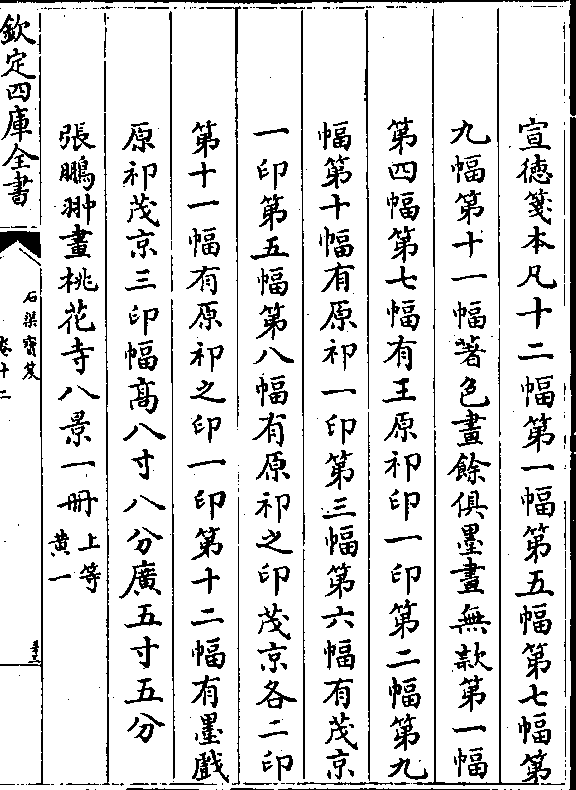 宣徳箋本凡十二幅第一幅第五幅第七幅第
九幅第十一幅著色畫餘俱墨畫無款第一幅
第四幅第七幅有王原祁印一印第二幅第九
幅第十幅有原祁一印第三幅第六幅有茂京
一印第五幅第八幅有原祁之印茂京各二印
第十一幅有原祁之印一印第十二幅有墨戲
原祁茂京三印幅髙八寸八分廣五寸五分
張鵬翀畫桃花寺八景一冊
上等
黄一
欽定四庫全書
石渠寳笈
卷十二